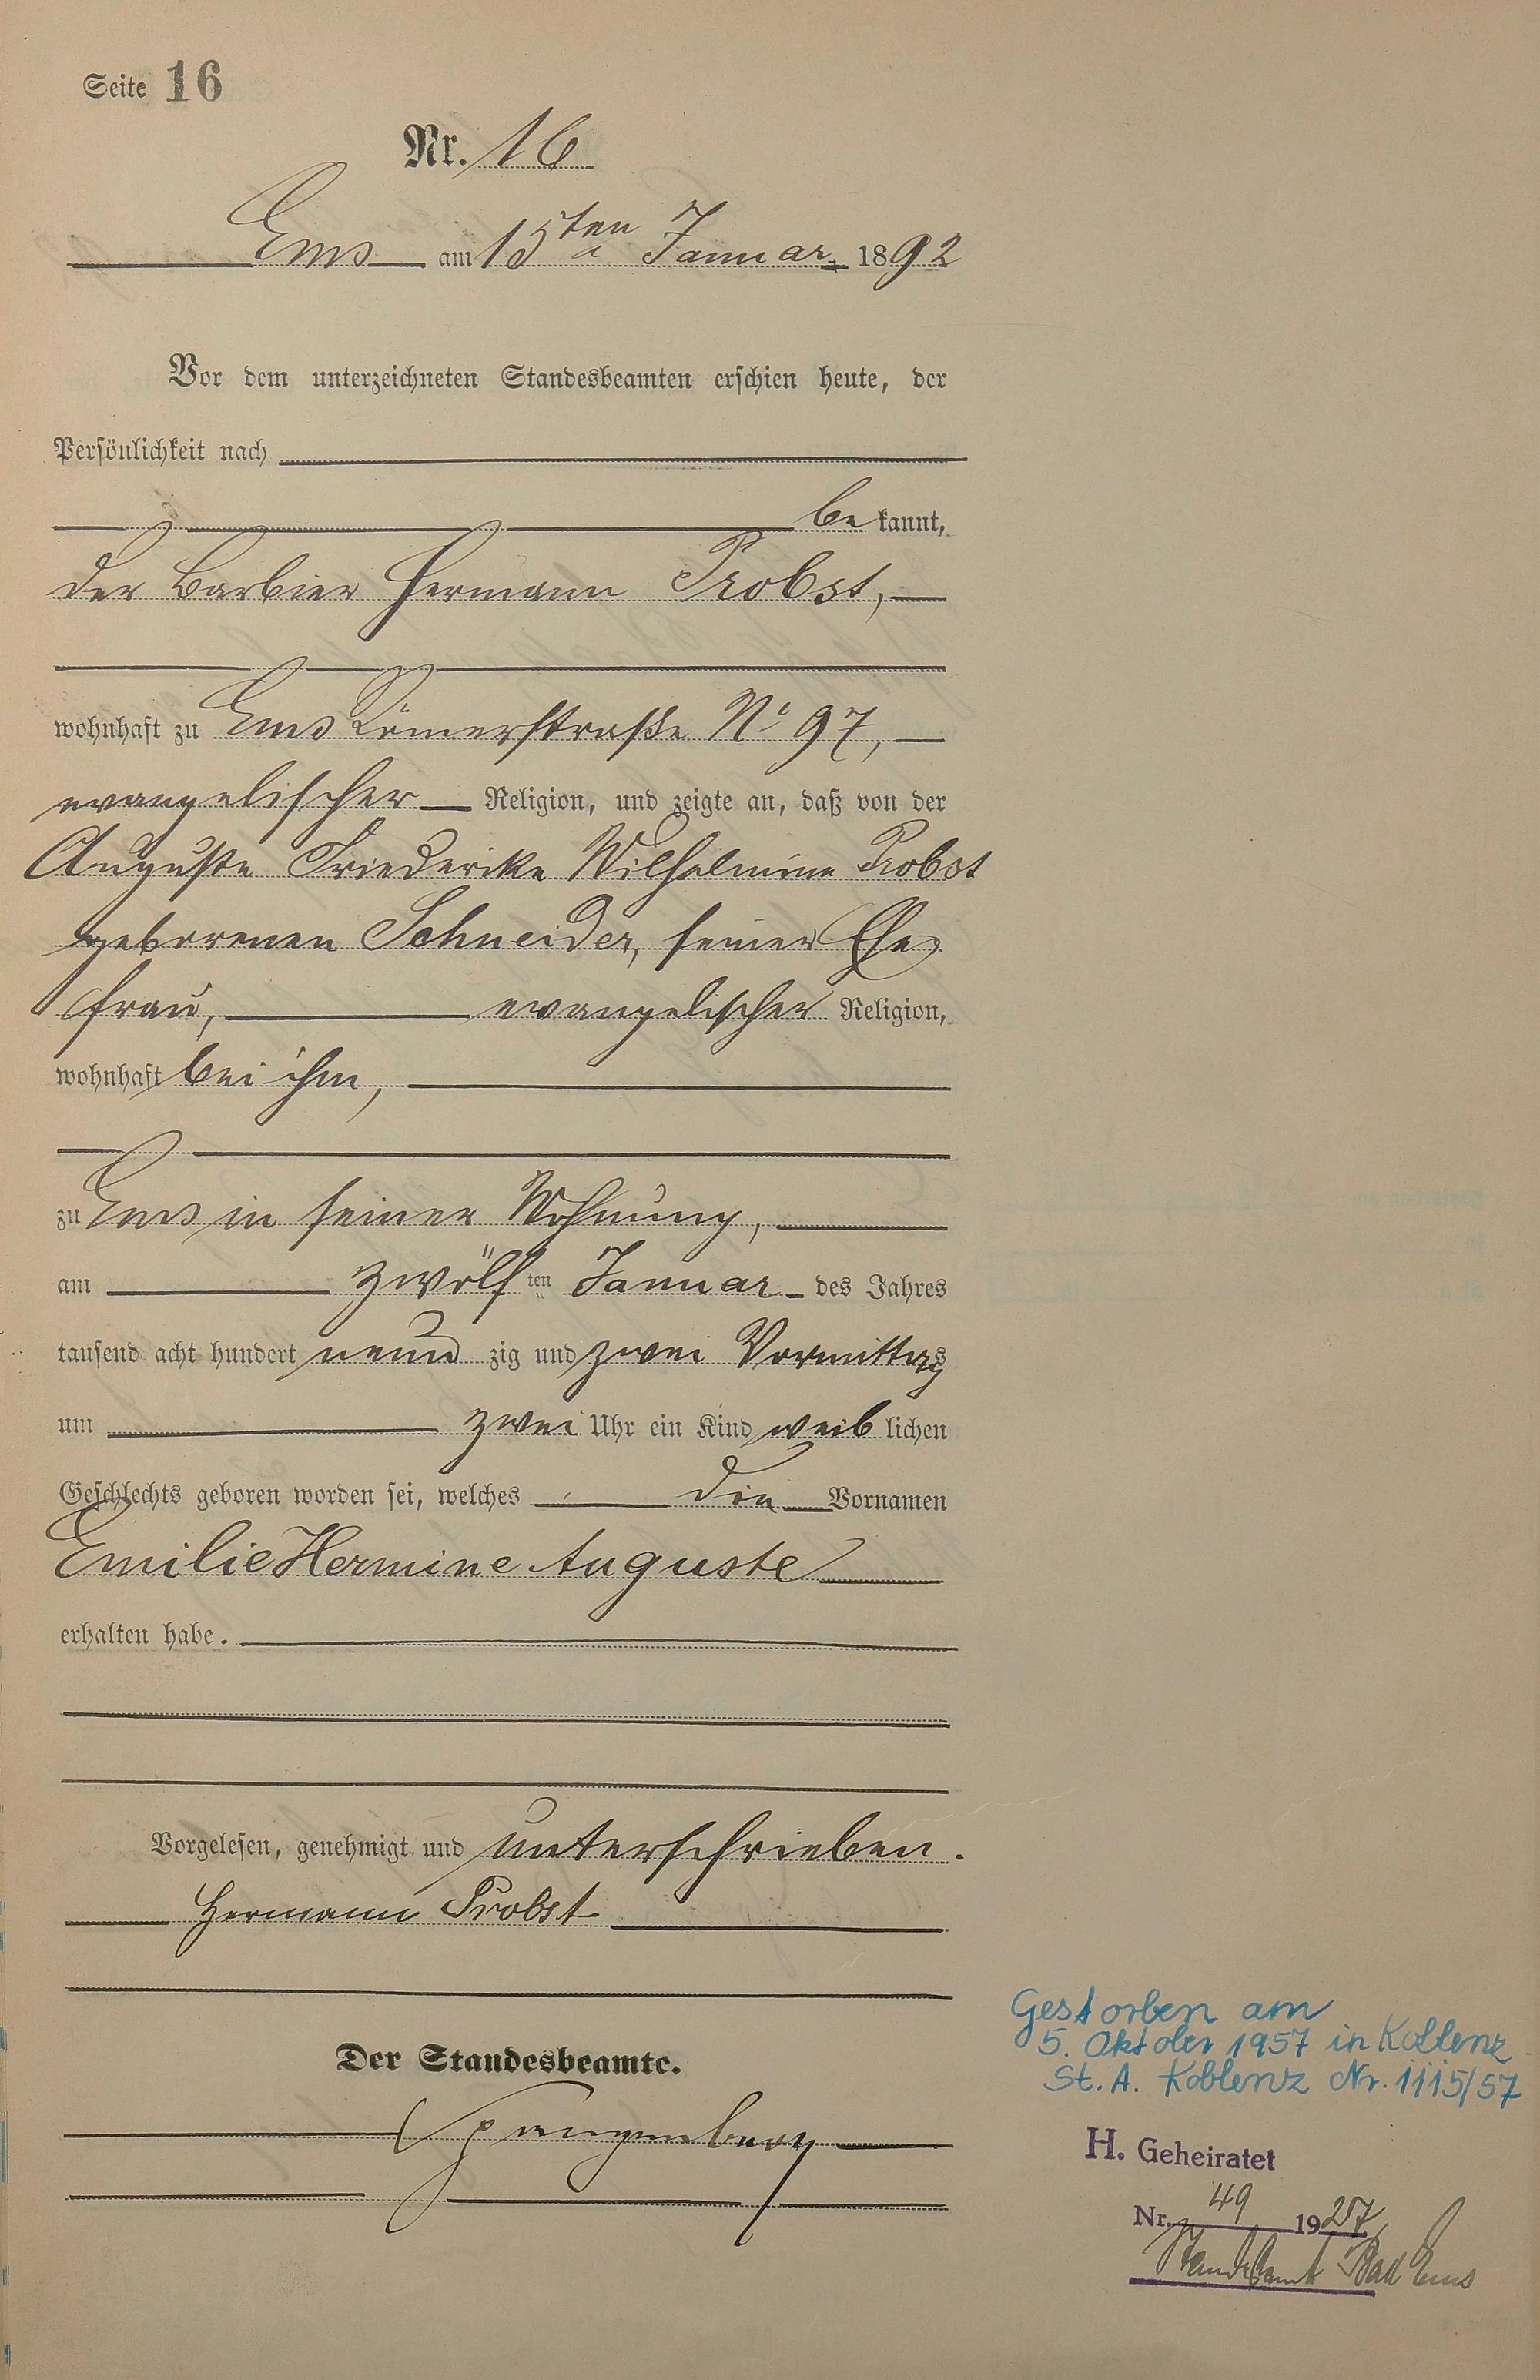 Seite 16
Nr. 16
Ems am 15ten Januar 1892
Vor dem unterzeichneten Standesbeamten erschien heute, der
Persönlichkeit nach
be kannt,
der Barbier Hermann Probst,
wohnhaft zu Ems Römerstraße No 97,
evangelischer Religion, und zeigte an, daß von der
Auguste Friederike Wilhelmine Probst
geborenen Schneider, seiner Ehe
frau, evangelischer Religion,
wohnhaft bei ihm,
zu Ems in seiner Wohnung,
am zwölf ten Januar des Jahres
tausend acht hundert neun zig und zwei Vormittags
um zwei Uhr ein Kind weib lichen
Geschlechts geboren worden sei, welches die Vornamen
Emilie Hermine Auguste
erhalten habe.
Vorgelesen, genehmigt und unterschrieben.
Hermann Probst
Der Standesbeamte.
Spangenberg
Gestorben am
5. Oktober 1957 in Koblenz
St. A. Koblenz Nr. 1115/57
H. Geheiratet
Nr. 49 1927
Standesamt Bad Ems